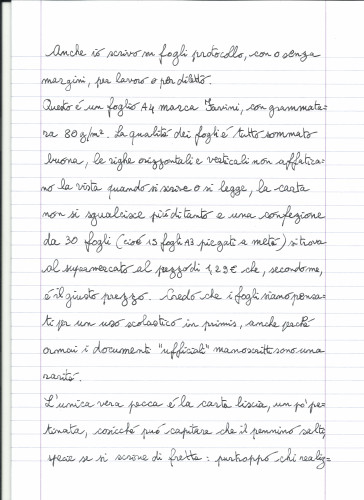 Anche io scrivo su fogli protocollo, con o senza
margini, per lavoro o per diletto.
Questo è un foglio A4 marca Favini, con grammatu=
ra 80 g/m². La qualità dei fogli è tutto sommato
buona, le righe orizzontali e verticali non affatica=
no la vista quando si scrive o si legge, la carta
non si sgualcisce più di tanto e una confezione
da 30 fogli (cioè 15 fogli A3 piegati a metà) si trova
al supermercato al prezzo di 1,29€ che, secondo me,
è il giusto prezzo. Credo che i fogli siano pensa=
ti per un uso scolastico in primis, anche perché
ormai i documenti "ufficiali" manoscritti sono una
rarità.
L'unica vera pecca è la carta liscia, un po' pa=
tinata, cosicché può capitare che il pennino salti,
specie se si scrive di fretta: purtroppo chi realiz=